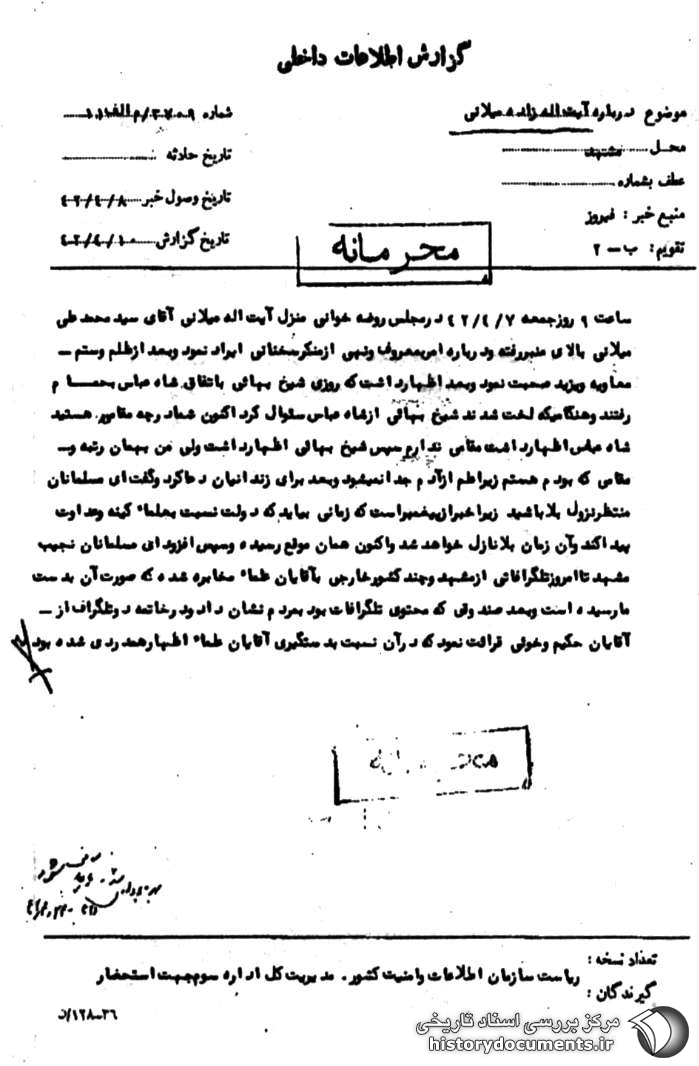 گزارش اطلاعات داخلی
موضوع درباره آیت اله زاده میلانی
شماره ۲۷۰۹/م الف ۱۱
محل مشهد
تاریخ حادثه
عطف بشماره
تاریخ وصول خبر ۴۲/۴/۸
منبع خبر : فیروز
تاریخ گزارش ۴۲/۴/۱۰
تقویم : ب – ۲
محرمانه
ساعت ۹ روز جمعه ۴۲/۴/۷ در مجلس روضه خوانی منزل آیت اله میلانی آقای سید محمد علی
میلانی بالای منبر رفته و درباره امر بمعروف و نهی از منکر سخنانی ایراد نمود و بعد از ظلم و ستم –
معاویه و یزید صحبت نمود و بعد اظهار داشت که روزی شیخ بهائی باتفاق شاه عباس بحمام
رفتند و هنگامیکه لخت شدند شیخ بهائی از شاه عباس سئوال کرد اکنون شما درچه مقامی هستید
شاه عباس اظهار داشت مقامی ندارم سپس شیخ بهائی اظهار داشت ولی من بهمان رتبه و –
مقامی که بودم هستم زیرا علم از آدم جدا نمیشود و بعد برای زندانیان دعا کرد و گفت ای مسلمانان
منتظر نزول بلا باشید زیرا خبر از پیغمبر است که زمانی بیاید که دولت نسبت بعلماء کینه و عداوت
پیدا کند و آن زمان بلا نازل خواهد شد و اکنون همان موقع رسیده و سپس افزود ای مسلمانان نجیب
مشهد تا امروز تلگرافاتی از مشهد و چند کشور خارجی بآقایان علماء مخابره شده که صورت آن بدست
ما رسیده است و بعد صندوقی که محتوی تلگرافات بود بمردم نشان داد و در خاتمه دو تلگراف از –
آقایان حکیم و خوئی قرائت نمود که در آن نسبت بدستگیری آقایان علماء اظهار همدردی شده بود
تعداد نسخه :
گیرندگان : ریاست سازمان اطلاعات و امنیت کشور . مدیریت کل اداره سوم جهت استحضار
۳۶–۱۲۸/د
مرکز بررسی اسناد تاریخی
historydocuments.ir